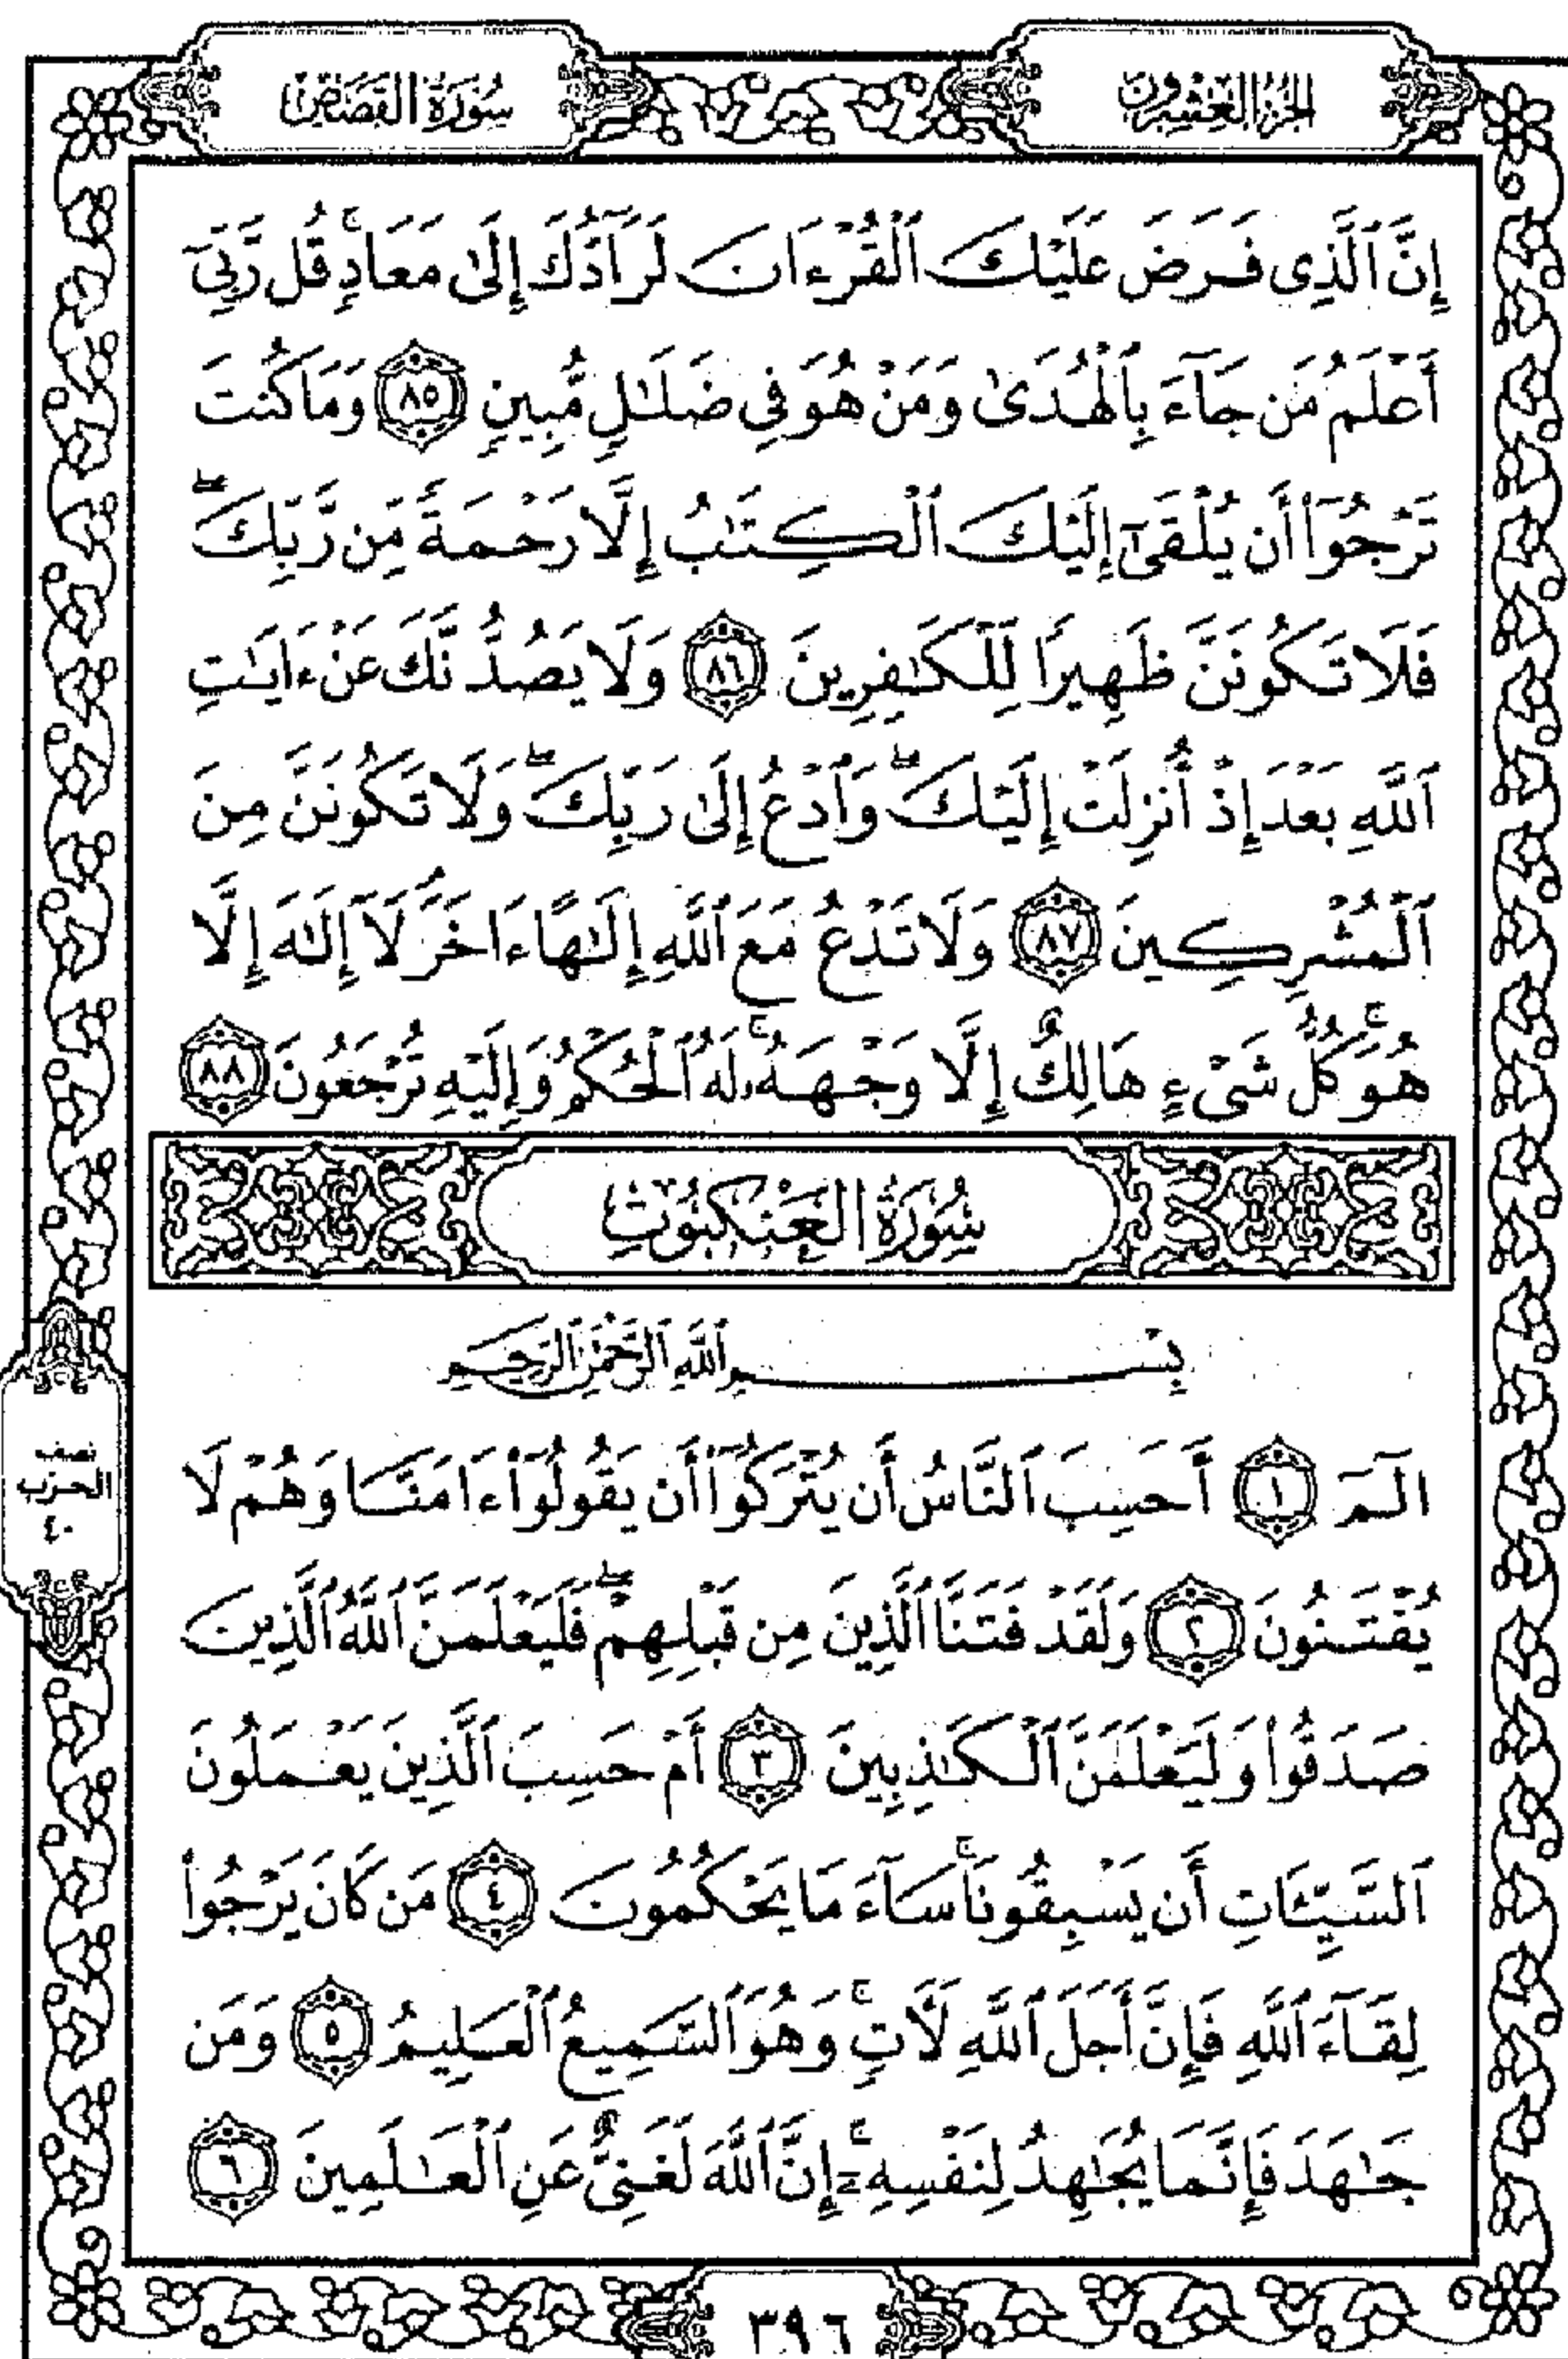 الجزء العشرون
سورة القصص
إِنَّ ٱلَّذِى فَرَضَ عَلَيْكَ ٱلْقُرْءَانَ لَرَآدُّكَ إِلَىٰ مَعَادٍۚ قُل رَّبِّىٓ
أَعْلَمُ مَن جَآءَ بِٱلْهُدَىٰ وَمَنْ هُوَ فِى ضَلَـٰلٍ مُّبِينٍ ٨٥ وَمَا كُنتَ
تَرْجُوٓا۟ أَن يُلْقَىٰٓ إِلَيْكَ ٱلْكِتَـٰبُ إِلَّا رَحْمَةً مِّن رَّبِّكَۖ
فَلَا تَكُونَنَّ ظَهِيرًا لِّلْكَـٰفِرِينَ ٨٦ وَلَا يَصُدُّنَّكَ عَنْ ءَايَـٰتِ
ٱللَّهِ بَعْدَ إِذْ أُنزِلَتْ إِلَيْكَۖ وَٱدْعُ إِلَىٰ رَبِّكَۖ وَلَا تَكُونَنَّ مِنَ
ٱلْمُشْرِكِينَ ٨٧ وَلَا تَدْعُ مَعَ ٱللَّهِ إِلَـٰهًا ءَاخَرَۘ لَآ إِلَـٰهَ إِلَّا
هُوَۚ كُلُّ شَىْءٍ هَالِكٌ إِلَّا وَجْهَهُۥۚ لَهُ ٱلْحُكْمُ وَإِلَيْهِ تُرْجَعُونَ ٨٨
سُورَةُ العَنْكَبُوتِ
بِسْمِ ٱللَّهِ ٱلرَّحْمَـٰنِ ٱلرَّحِيمِ
الٓمٓ ١ أَحَسِبَ ٱلنَّاسُ أَن يُتْرَكُوٓا۟ أَن يَقُولُوٓا۟ ءَامَنَّا وَهُمْ لَا
يُفْتَنُونَ ٢ وَلَقَدْ فَتَنَّا ٱلَّذِينَ مِن قَبْلِهِمْۖ فَلَيَعْلَمَنَّ ٱللَّهُ ٱلَّذِينَ
صَدَقُوا۟ وَلَيَعْلَمَنَّ ٱلْكَـٰذِبِينَ ٣ أَمْ حَسِبَ ٱلَّذِينَ يَعْمَلُونَ
ٱلسَّيِّـَٔاتِ أَن يَسْبِقُونَاۚ سَآءَ مَا يَحْكُمُونَ ٤ مَن كَانَ يَرْجُوا۟
لِقَآءَ ٱللَّهِ فَإِنَّ أَجَلَ ٱللَّهِ لَـَٔاتٍۚ وَهُوَ ٱلسَّمِيعُ ٱلْعَلِيمُ ٥ وَمَن
جَـٰهَدَ فَإِنَّمَا يُجَـٰهِدُ لِنَفْسِهِۦٓۚ إِنَّ ٱللَّهَ لَغَنِىٌّ عَنِ ٱلْعَـٰلَمِينَ ٦
نصف
الحزب
٤٠
٣٩٦